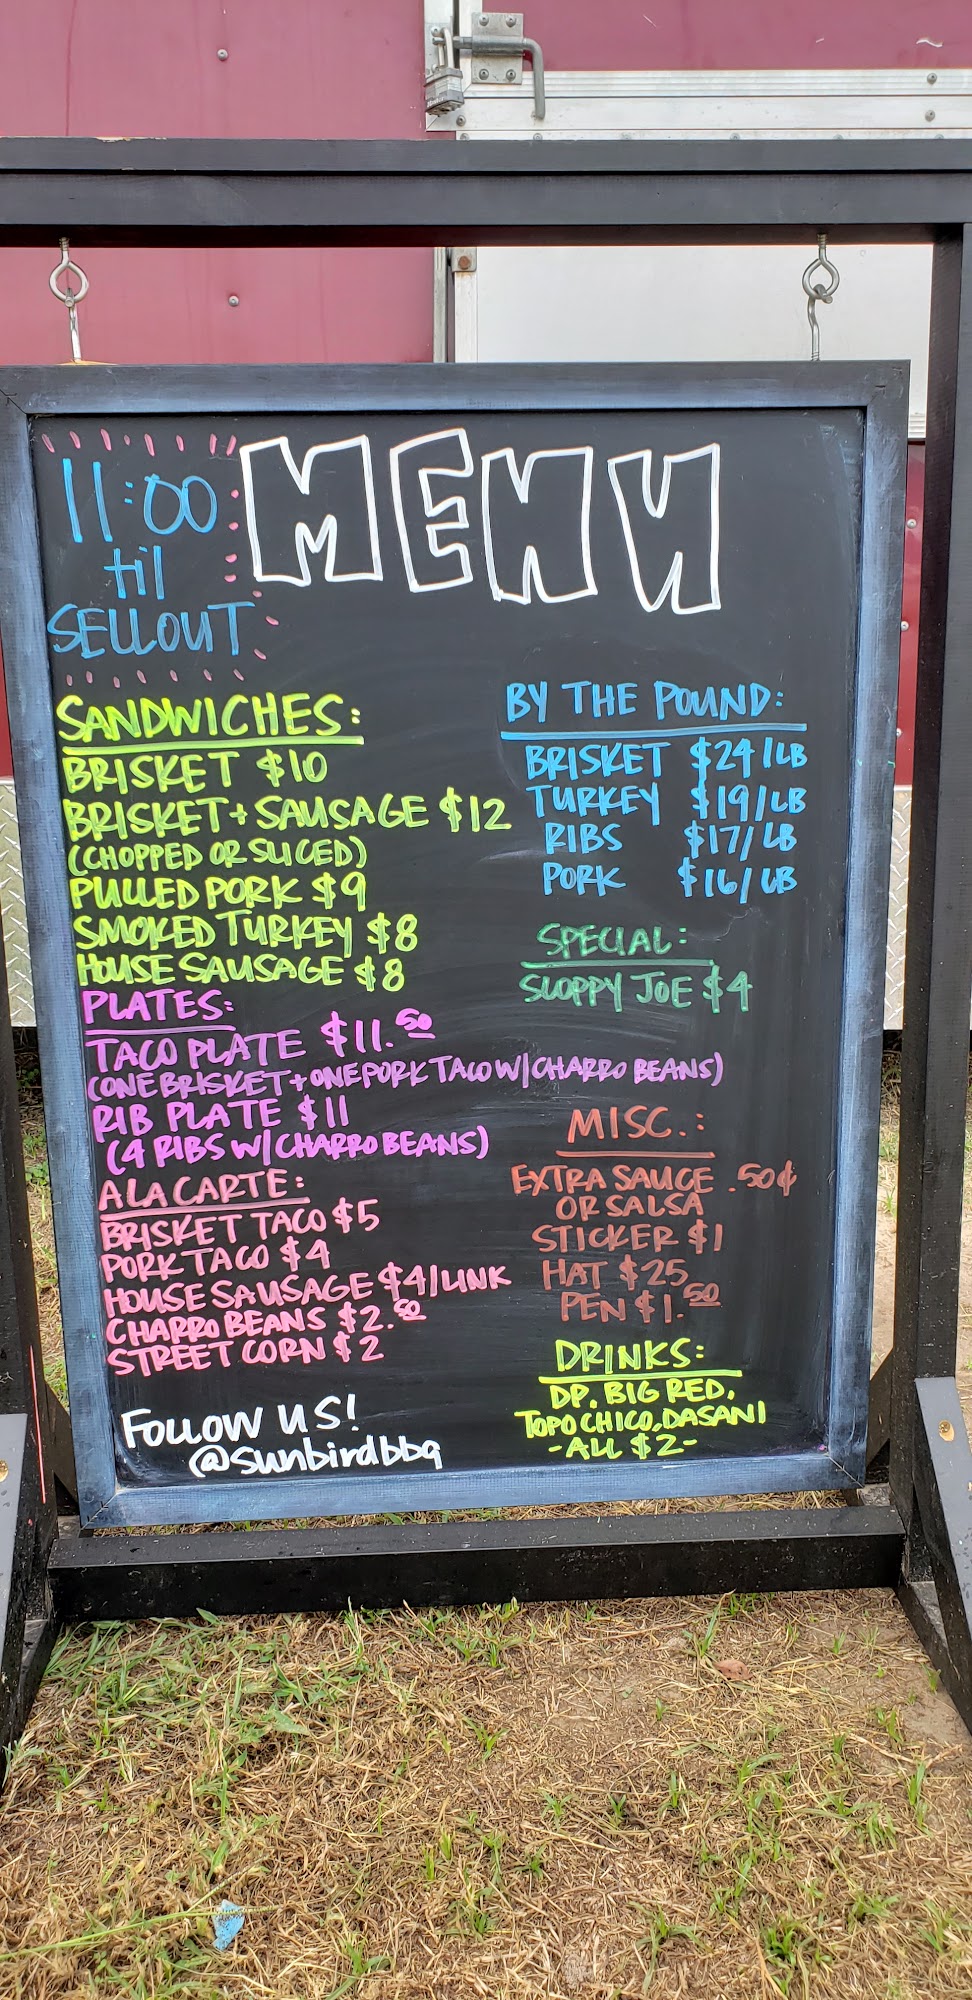 11:00
til
SELLOUT
MENU
SANDWICHES:
BRISKET $10
BRISKET + SAUSAGE $12
(CHOPPED OR SLICED)
PULLED PORK $9
SMOKED TURKEY $8
HOUSE SAUSAGE $8
PLATES:
TACO PLATE $11.50
(ONE BRISKET + ONE PORK TACO W/ CHARRO BEANS)
RIB PLATE $11
(4 RIBS W/ CHARRO BEANS)
A LA CARTE:
BRISKET TACO $5
PORK TACO $4
HOUSE SAUSAGE $4/LINK
CHARRO BEANS $2.50
STREET CORN $2
FOLLOW US!
@Sunbirdbbq
BY THE POUND:
BRISKET $24/LB
TURKEY $19/LB
RIBS $17/LB
PORK $16/LB
SPECIAL:
SLOPPY JOE $4
MISC.:
EXTRA SAUCE .50¢
OR SALSA
STICKER $1
HAT $25
PEN $1.50
DRINKS:
DP, BIG RED,
TOPO CHICO, DASANI
-ALL $2-